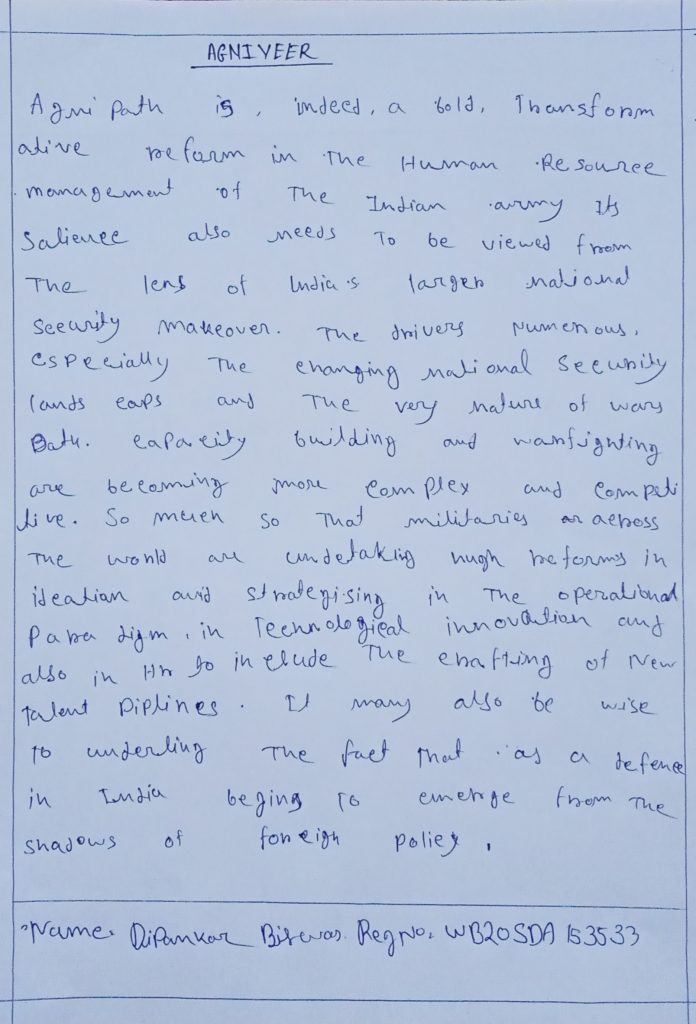 AGNIVEER
Agni path is, indeed, a bold, Transform
ative reform in The Human Resource
management of The Indian army Its
Salience also needs To be viewed from
The lens of India's larger national
Security makeover. The drivers numerous,
especially The changing national Security
lands caps and The very nature of wars
Bath. capacity building and warfighting
are becoming more complex and competi
tive. So much so That militaries across
The world are undetaking hugh reforms in
ideation and strategising in The operational
Para digm, in Technological innovation and
also in Hr to include The crafting of New
talent Piplines. It many also be wise
To underling The fact That as a defence
in India beging To emerge from The
shadows of foreign policy,
Name. Dipankar Biswas. Reg No. WB20SDA153533